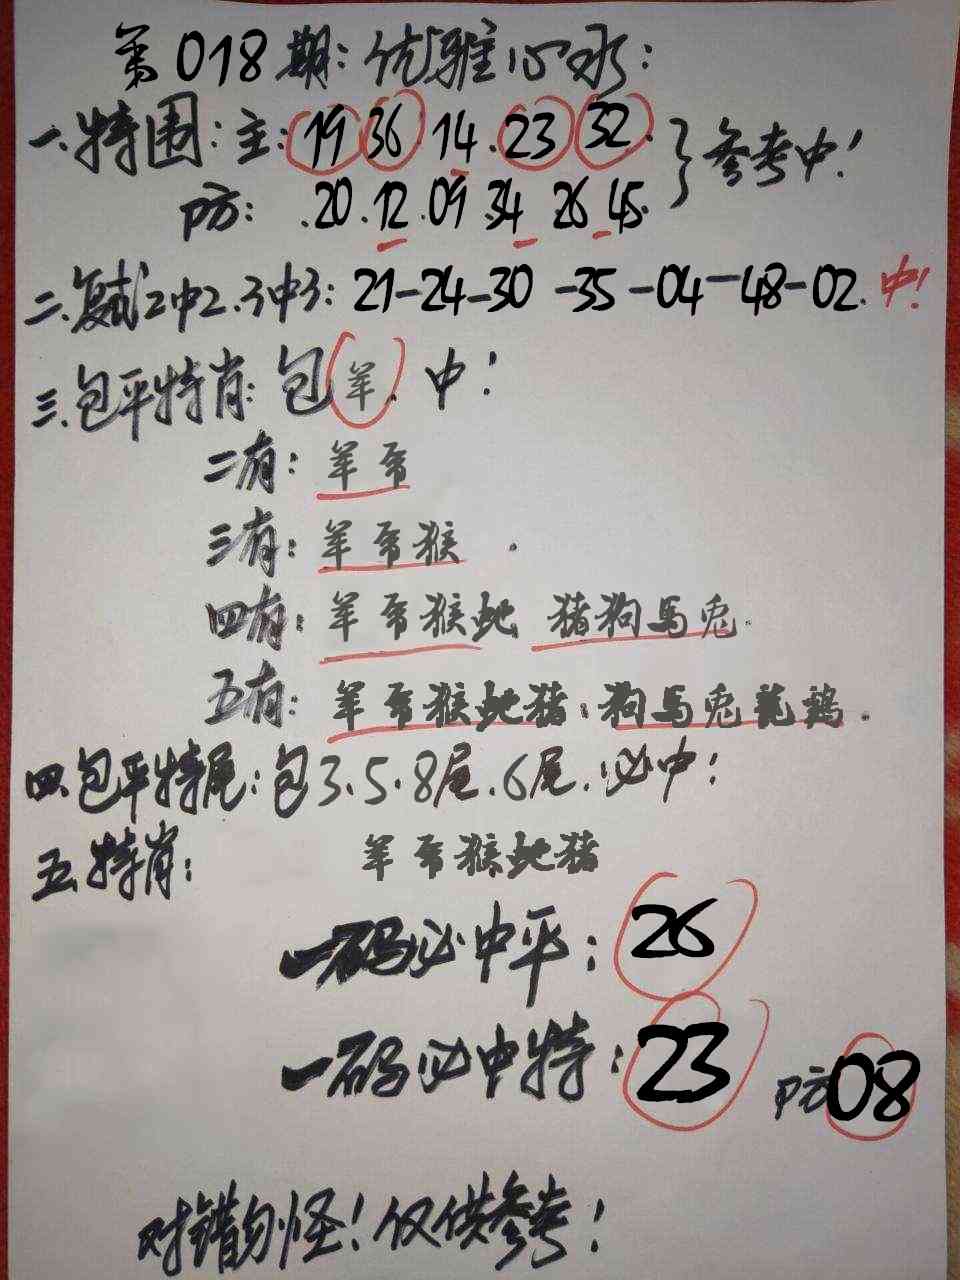 第018期:优雅心水:
一.特围:主:19 36.14.23 32.}参考中!
防:.20.12.09.34 26.45.
二.复试2中2.3中3:21-24-30-35-04-48-02.中!
三.包平特肖:包羊.中!
二有:羊
三有:羊 猴.
四有:羊 猴蛇 猪狗马兔.
五有:羊 猴蛇猪:狗马兔龍鷄.
四.包平特尾:包3.5.8尾.6尾.必中!
五.特肖: 羊 猴蛇猪
一码必中平:26
一码必中特:23 防08
对错勿怪!仅供参考!